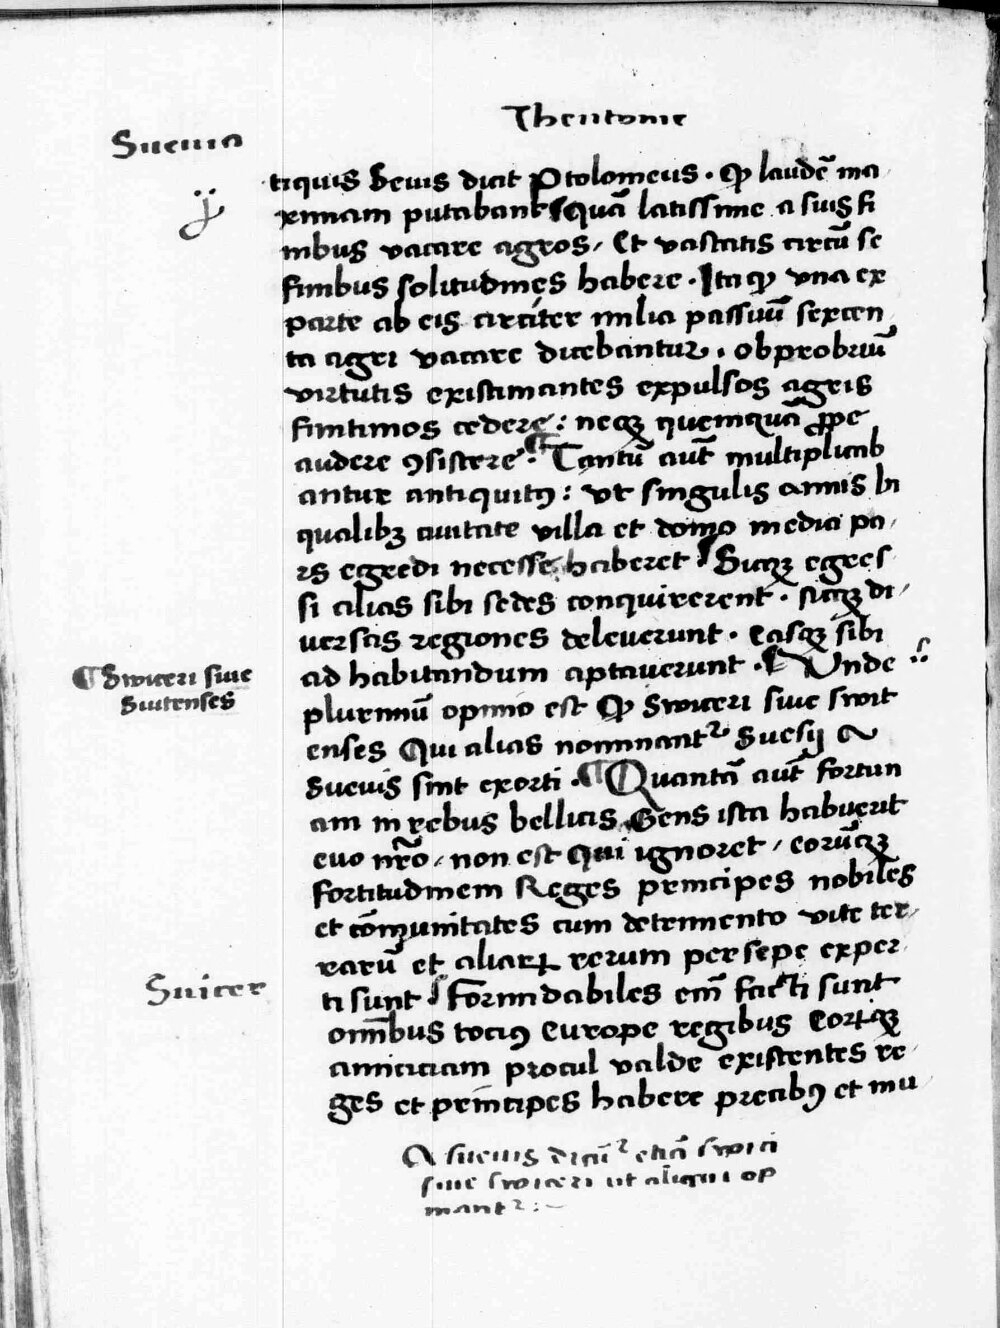 Theutonie
Sueuia
ij
tiquis Seuis dicit Ptolomeus . Qꝫ laudē ma
ximam putabant quā latissime a suis fi
nibus vacare agros / Et vastatis circū se
finibus solitudines habere . Ita qꝫ vna ex
parte ab eis circiter milia passuū sexcen
ta agri vacare dicebantur . obprobriū
virtutis existimantes expulsos agris
finitimos cedere : neqꝫ quemquā ꝓpe
audere ꝯsistere . Tantū aūt multiplicab
antur antiquitꝰ : vt singulis annis in
qualibꝫ ciuitate villa et domo media pa
rs egredi necesse haberet . Sicqꝫ egres
si alias sibi sedes conquirerent . sicqꝫ di
uersas regiones deleuerunt . Easqꝫ sibi
ad habitandum aptauerunt . Vnde
¶ Switeri siue
Suitenses
plurimū opinio est Qꝫ Switeri siue swit
enses Qui alias nominantᷣ Suesij a
Sueuis sint exorti . ¶ Quantā aūt fortun
am in rebus bellicis Gens ista habuerit
euo nr̄o / non est qui ignoret / eorūqꝫ
fortitudinem Reges principes nobiles
et cōmunitates cum detrimento vite ter
rarū et aliarꝝ rerum per sepe exper
Suicer
ti sunt . Formidabiles em̄ facti sunt
omībus tociꝰ Europe regibus Eorꝝqꝫ
amiciciam procul valde existentes re
ges et principes habere precibꝰ et mu
A sueuis dicūᷣ etiā swici
siue switeri ut aliqui opi
nantᷣ :~